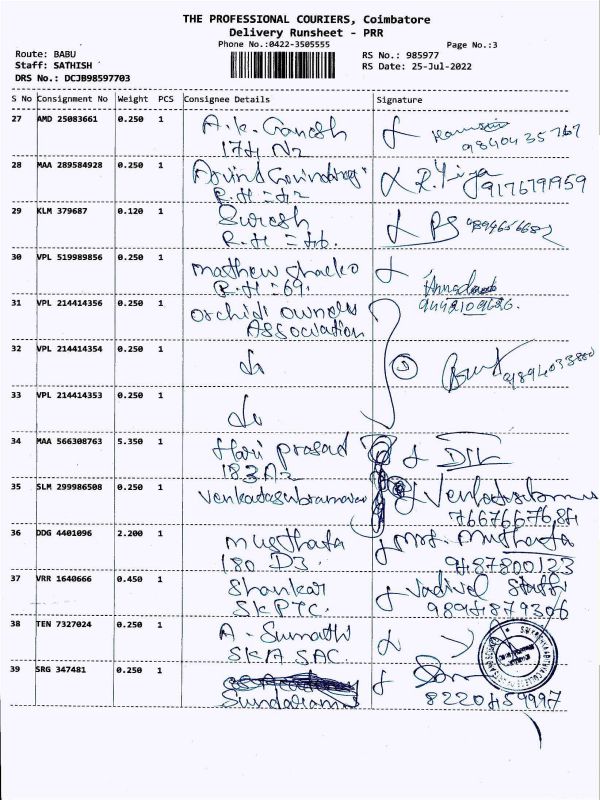 THE PROFESSIONAL COURIERS, Coimbatore
Delivery Runsheet - PRR
Phone No.:0422-3505555
Page No.:3
Route: BABU
RS No.: 985977
Staff: SATHISH
RS Date: 25-Jul-2022
DRS No.: DCJB98597703
S No Consignment No Weight PCS Consignee Details Signature
27 AMD 25083661 0.250 1 A.K. Ganesh
174 N2
9840435767
28 MAA 289584928 0.250 1 Arvind Govindraj R.
R.H =
9176791959
29 KLM 379687 0.120 1 Suresh
R.H =
30 VPL 519989856 0.250 1 Mathew chacko
R.H =69.
31 VPL 214414356 0.250 1 Orchid owners
Association
9442109626.
32 VPL 214414354 0.250 1 do 3
33 VPL 214414353 0.250 1 do
34 MAA 566308763 5.350 1 Hari prasad
183A2
35 SLM 299986508 0.250 1 Venkatasubramanian
7667667684
36 DDG 4401096 2.200 1 Musthafa Mr. Musthafa
180 D3. 9487800123
37 VRR 1640666 0.450 1 Shankar Vadivel
SKPTC. 9894879306
38 TEN 7327024 0.250 1 A. Sumathi
SKASAC
39 SRG 347481 0.250 1
Sundaram 8220459997